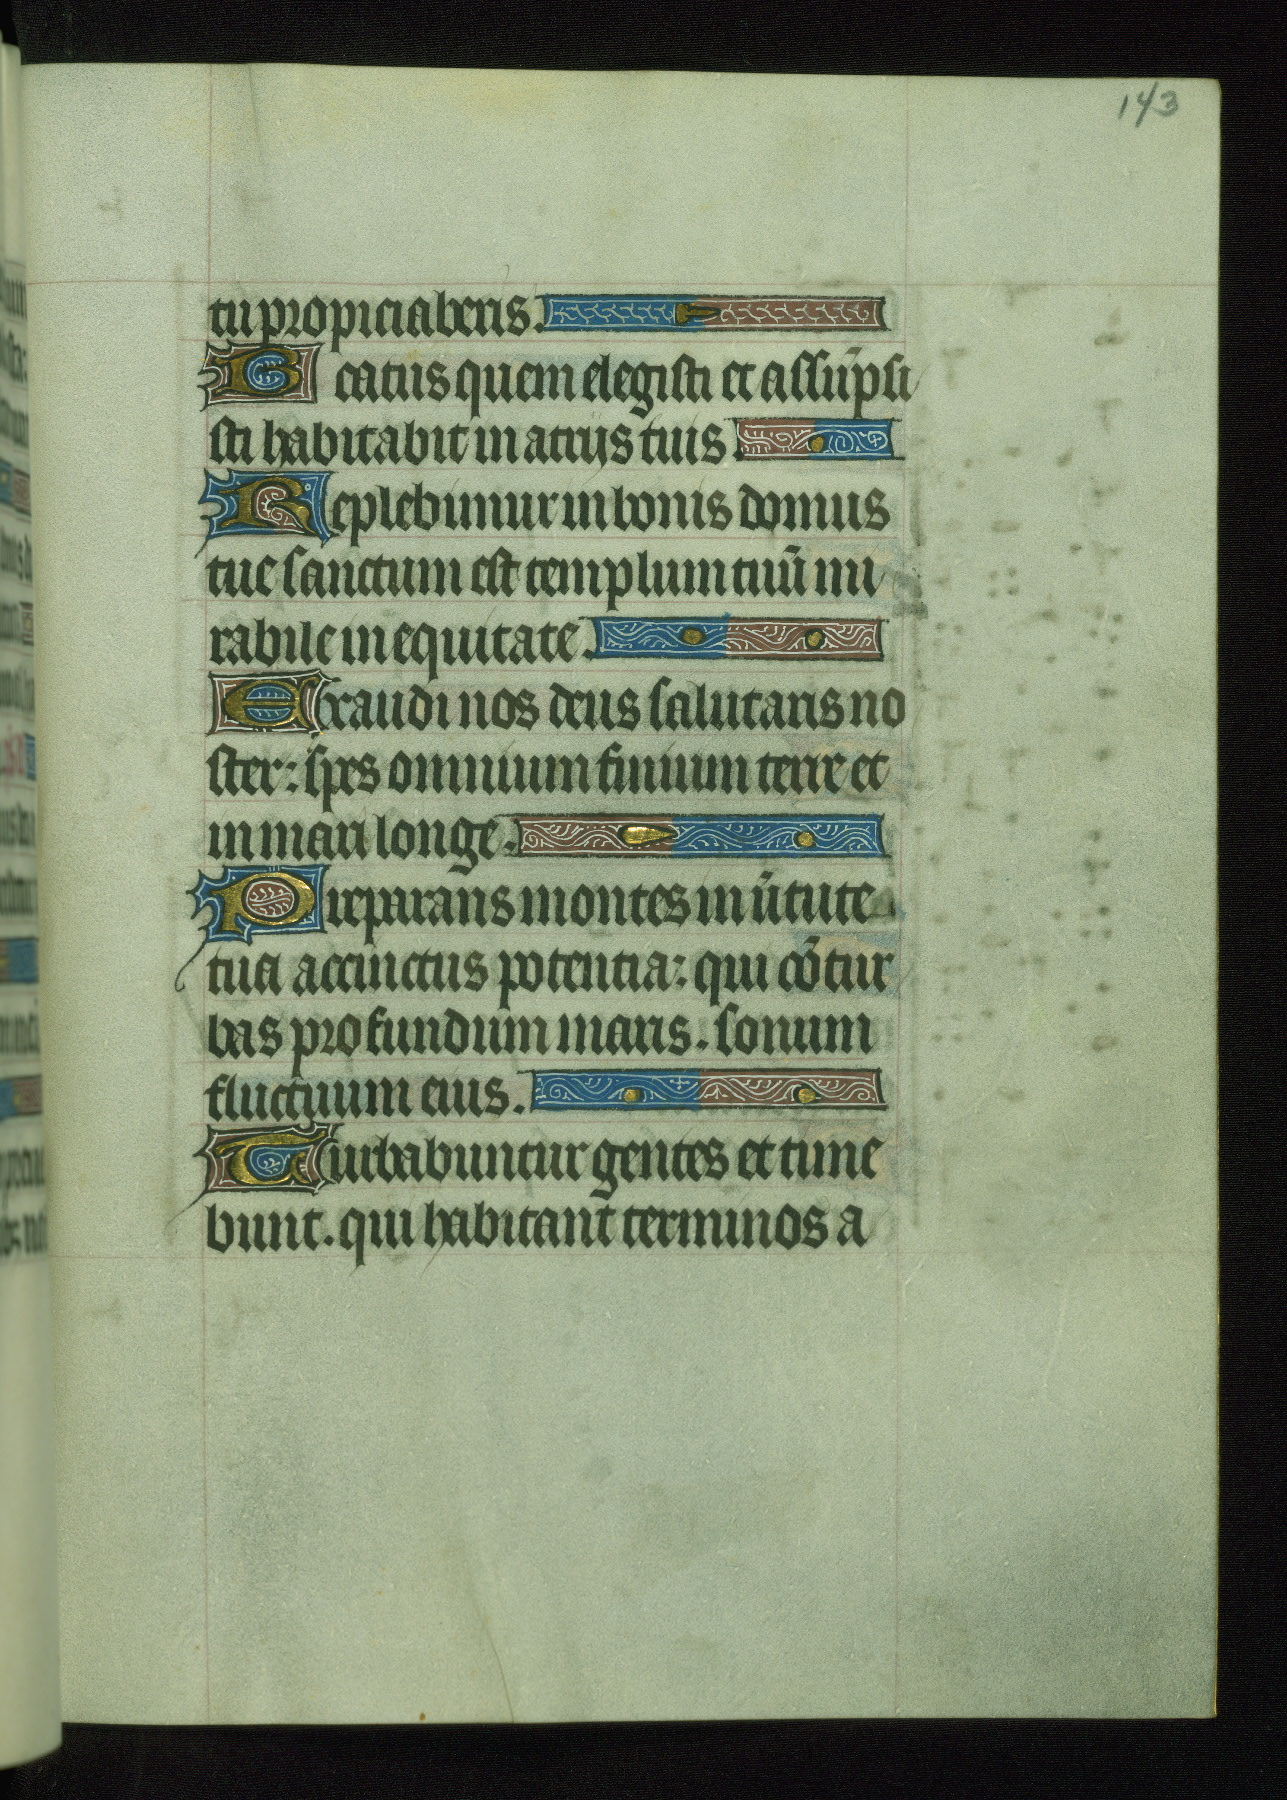 143
tu propiciaberis.
Beatus quem elegisti et assūpsi
sti habitabit in atrijs tuis.
Replebimur in bonis domus
tue sanctum est templum tuū mi
rabile in equitate.
Exaudi nos deus salutaris no
ster: spes omnium finium terre et
in mari longe.
Preparans montes in ūtute
tua accinctus potentia: qui cōtur
bas profundum maris. sonum
fluctuum eius.
Turbabuntur gentes et time
bunt. qui habitant terminos a